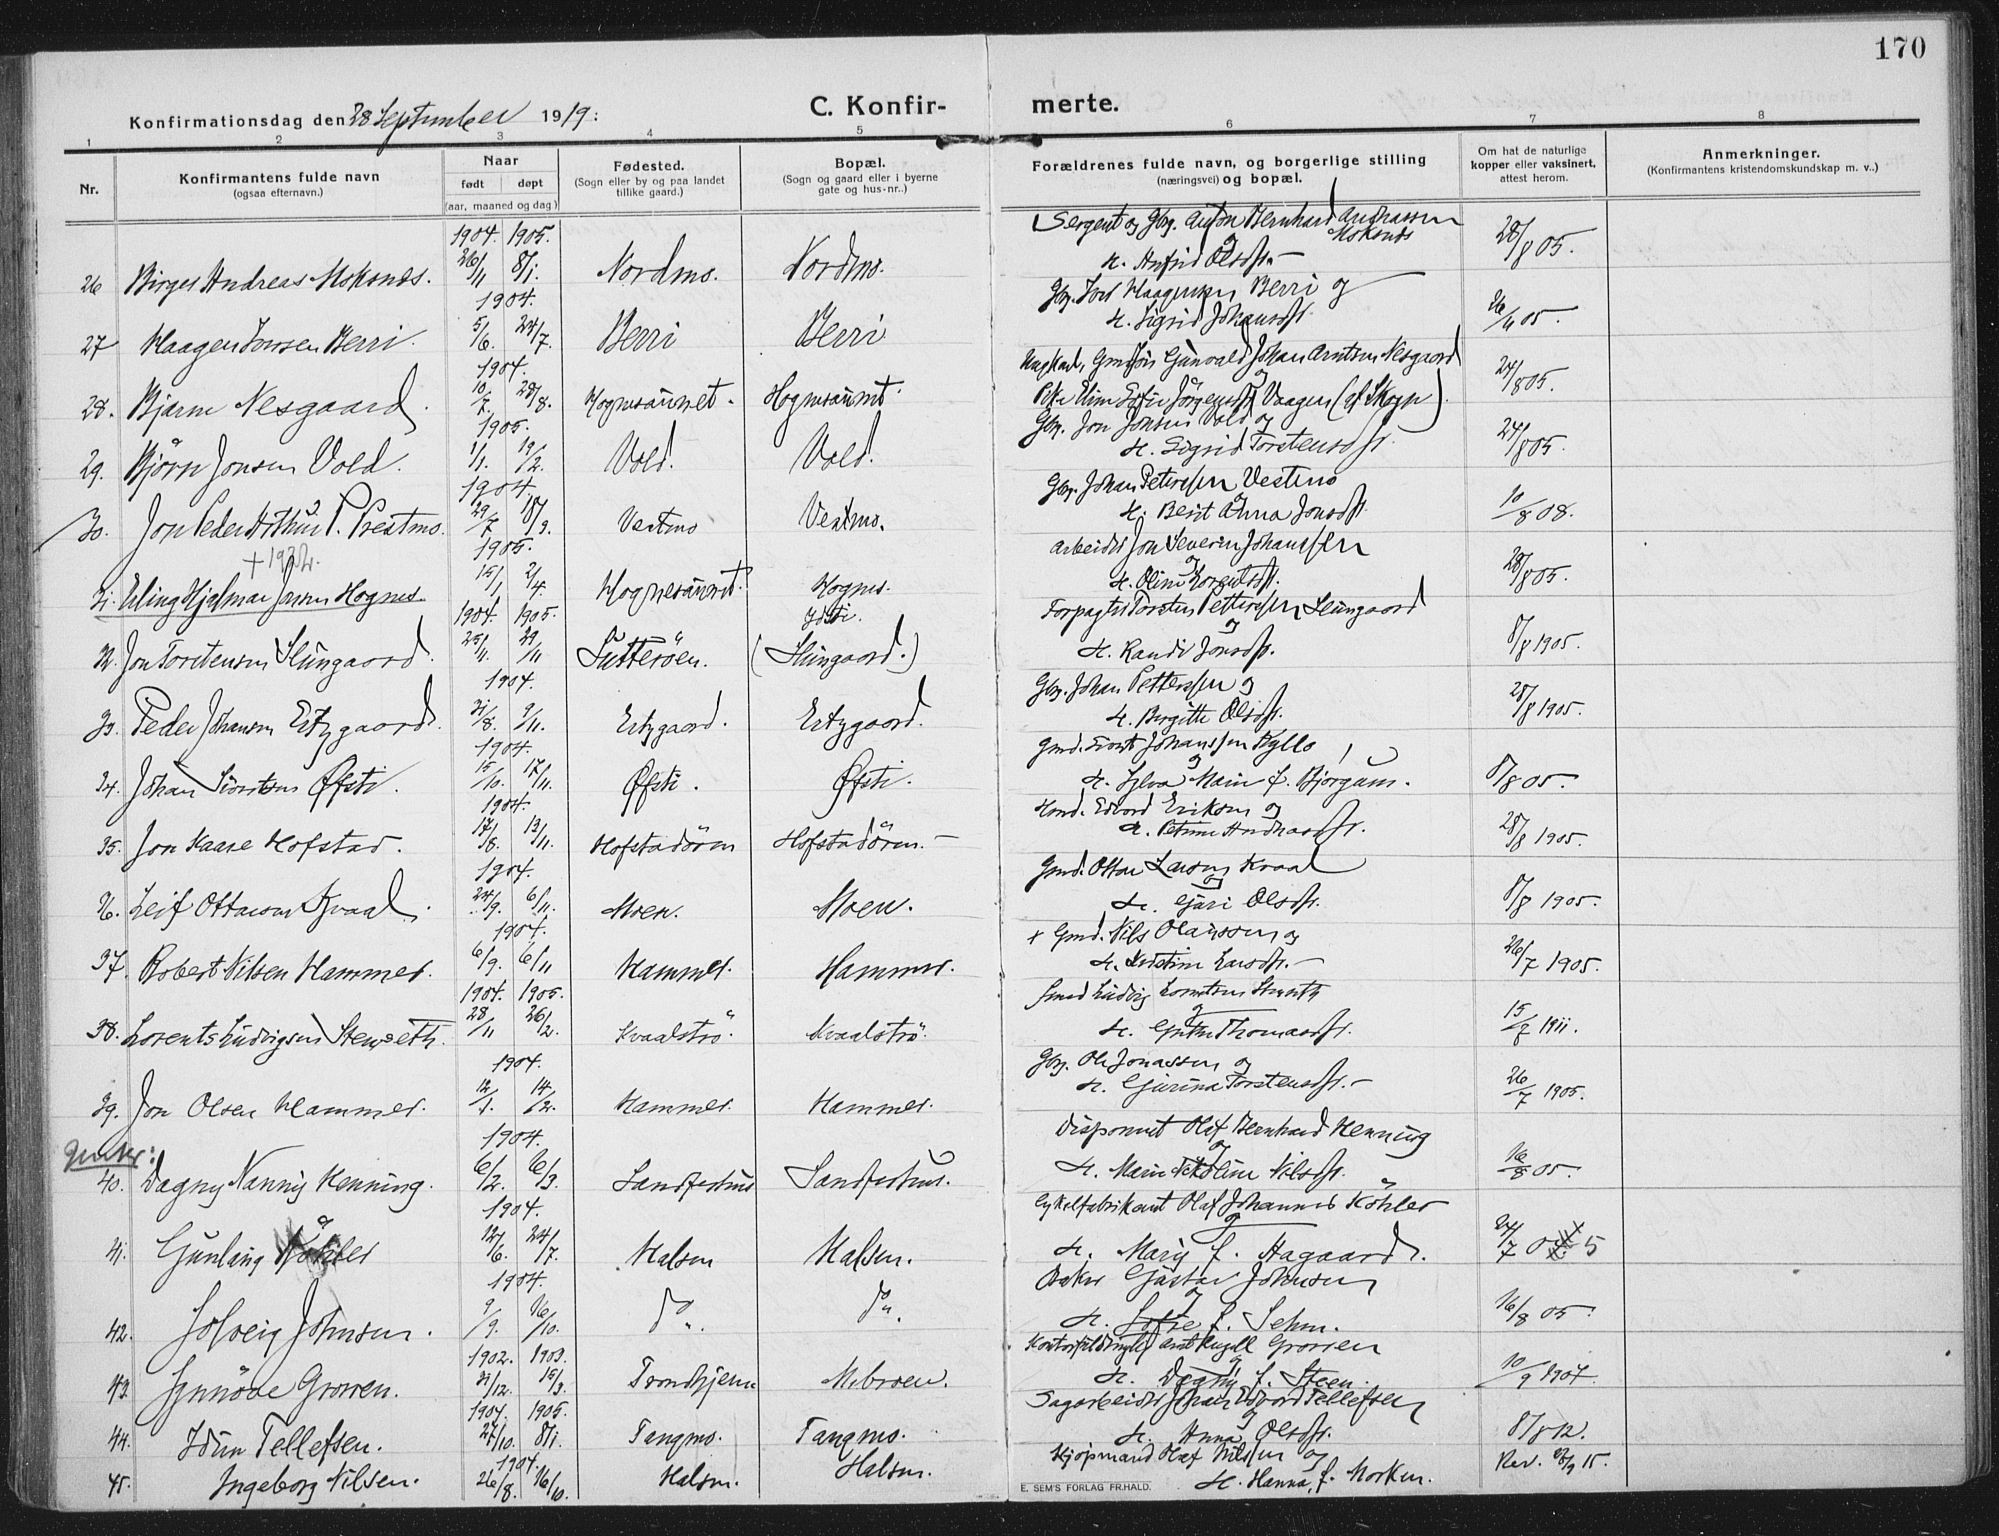 170
Konfirmationsdag den 28 September 1919:
C. Konfir- merte.
1 2 3 4 5 6 7 8
Nr.
Konfirmantens fulde navn
(ogsaa efternavn.)
Naar
født døpt
(aar, maaned og dag.)
Fødested.
(Sogn eller by og paa landet
tillike gaard.)
Bopæl.
(Sogn og gaard eller i byerne
gate og hus-nr..)
Forældrenes fulde navn, og borgerlige stilling
(næringsvei) og bopæl.
Om hat de naturlige
kopper eller vaksinert,
attest herom.
Anmerkninger.
(Konfirmantens kristendomskundskap m. v..)
1904. 1905. Sergent og Gbr. Anton Bernhard Andreassen Moksnes
26 Birger Andreas Moksnes. 26/11 8/1. Nordmo. Nordmo. H. Anfrid Olsdtr. 28/8 05.
1904. Haagensen Berri og
27 Haagen Berri. 5/6. 24/7. Berri Berri H. Sigrid Johansdtr. 05.
1904. Gunvald Johan Arntsen Nesgaard
28. Bjarne Nesgaard. 10/7. 28/8. Hognesaunet. Hognesaunet. Vaagen 24/8 05.
1905. Gbr. Jon Jonsen Vold og
29. Bjørn Jonsen Vold. 1/1. 19/2. Vold. Vold. H. Sigrid Torstensdtr. 24/8 05.
1904. Gbr. Johan Peterssen Vestmo
30. Jon Peder Arthur P. Prestmo. 29/7 18/9. Vestmo Vestmo. H. Berit Anna Jonsdtr. 10/8 08.
+ 1932.
1905. Arbeider Jon Severin Johanssen
31. Erling Hjalmar Jonsen Hognes. 15/1 2/4. Hognesaunet. Hognes. H. Oline Lorentsdtr. 28/8 05.
1904. 1905. Øfsti. Forpagter Torsten Petterssen Slungaard
32. Jon Torstensen Slungaard. 25/11. 29/11 Sutterøen. (Slungaard.) H. Randi Jonsdtr. 8/8 1905.
1904. Gbr. Johan Petterssen og
33. Peder Johansen Ertzgaard. 31/8. 9/11. Ertzgaard. Ertzgaard. H. Birgitte Olsdtr. 28/8 1905.
1904. Gmd. Sivert Johanssen Kyllo
34. Johan Sivertsen Øfsti. 15/10. 17/11. Øfsti. Øfsti. Marie f. Bjørgum. 8/8 05.
1904. Edvard Eriksen og
35. Jon Kaare Hofstad. 17/8. 13/11. Hofstadøren Hofstadøren. H. Petrine Andreasdtr. 28/8 1905.
1904. Gmd. Ottar Larsen Kvaal
36. Leif Ottarsen Kvaal. 24/9. 6/11. Moen. Moen. H. Guri Olsdtr. 8/8 1905.
1904. + Gmd. Nils Olaussen og
37. Robert Nilsen Hammer. 6/9. 6/11 Hammer. Hammer. H. Kristine Larsdtr. 26/7 1905.
1904. 1905. Smed Ludvig Lorentsen Stenseth
38. Lorents Ludvigsen Stenseth. 28/11 26/2. Kvaalstrø. Kvaalstrø. Thomasdtr. 15/7 1911.
1904. Gbr. Ole Jonassen og
39. Jon Olsen Hammer. 12/1. 14/2. Hammer. Hammer. H. Gurina Torstensdtr. 26/7 1905.
Piker:
1904. Disponent Olaf Bernhard Henning
40. Dagny Nanny Henning. 6/2. 6/3. Sandferhus Sandferhus. H. Marie Nikoline Nilsdtr. 16/8 05.
1904. Cykelfabrikant Olaf Johannes Köhler
41. Gunlaug Köhler 12/6. 24/7. Halsen Halsen. H. Mary f. Aagaard. 24/7 05
1904. Baker Gustav Johnsen
42. Solveig Johnsen. 9/9. 16/10. do. do. H. Sofie f. Sehm. 16/8 05.
1902. 1903. Grorren
43. Synnöve Grorren. 31/12. 15/3. Trondhjem Mebroen. H. Dagny f. Steen. 10/9 1904.
1904. 1905. Sagarbeider Johan Edvard Tellefsen
44. Idun Tellefsen. 27/10. 8/1. Tangmo. Tangmo. H. Anna Olsdtr. 8/8 12.
1904. Kjøpmand Olaf Nilssen og
45. Ingeborg Nilsen. 26/8. 16/10. Halsen. Halsen. H. Hanna f. Morken. Rev. 15.
E. SEM'S FORLAG FR.HALD.